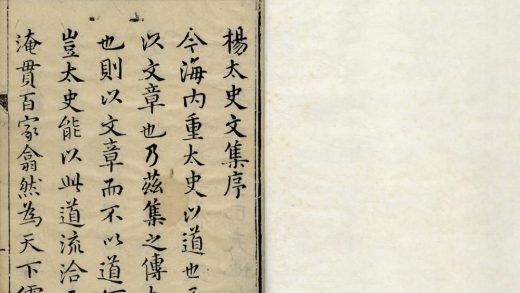 楊太史文集序
今海內重太史以道也
以文章也乃茲集之傳
也則以文章而不以道
豈太史能以此道流洽
淹貫百家翕然為天下儒